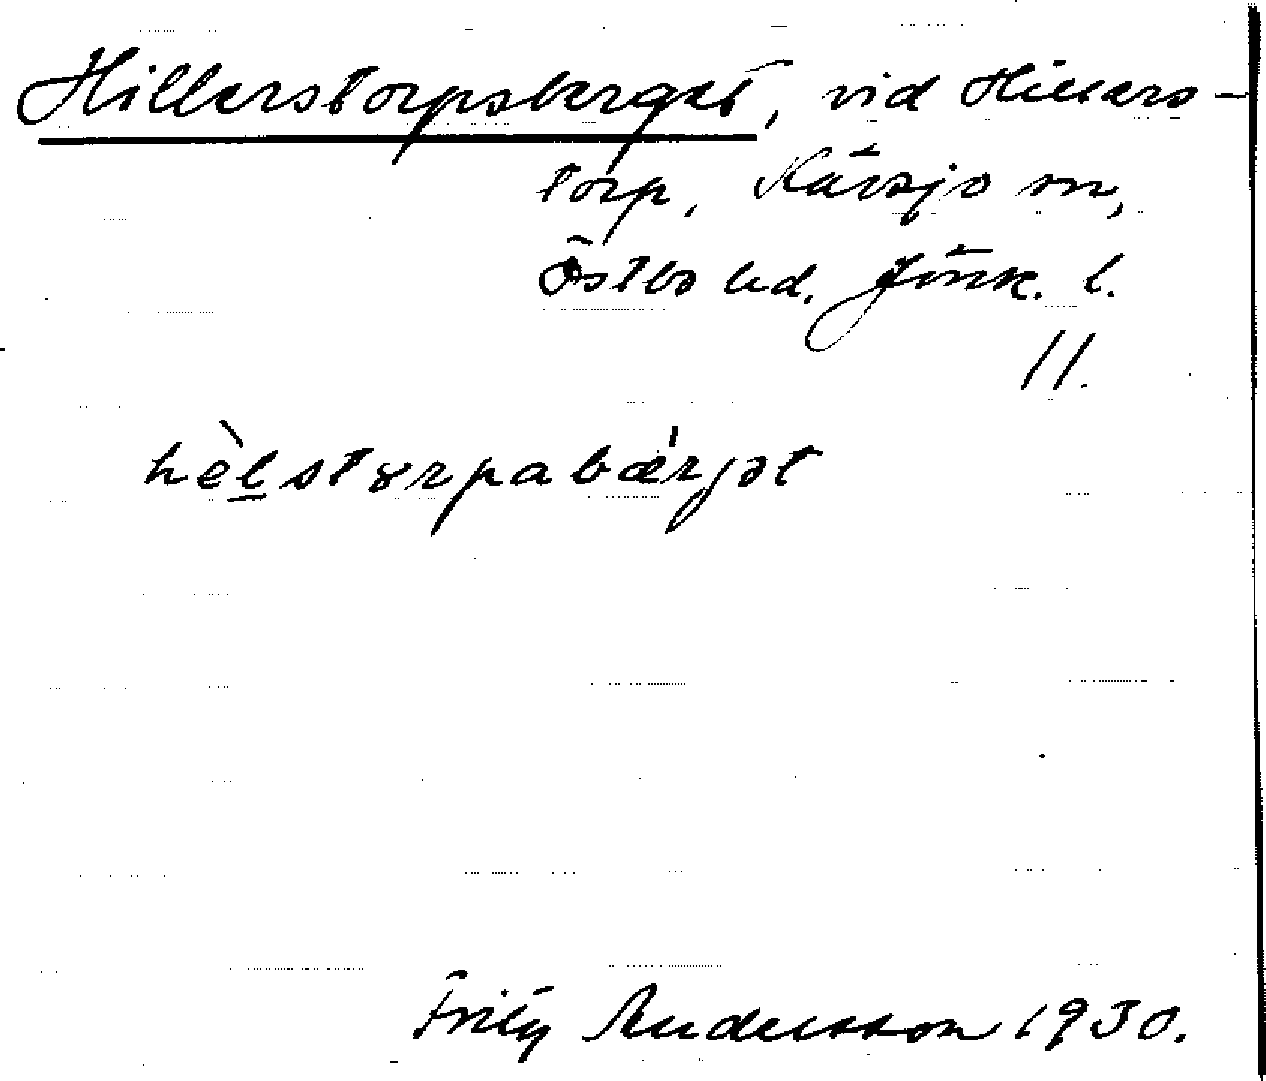 Hillerstorpsberget, vid Hillers-
torp, Kävsjö sn,
Östbo hd. Jönk. l.
11.
hèlstɤrpabǽrjət
Fritz Andersson 1930.